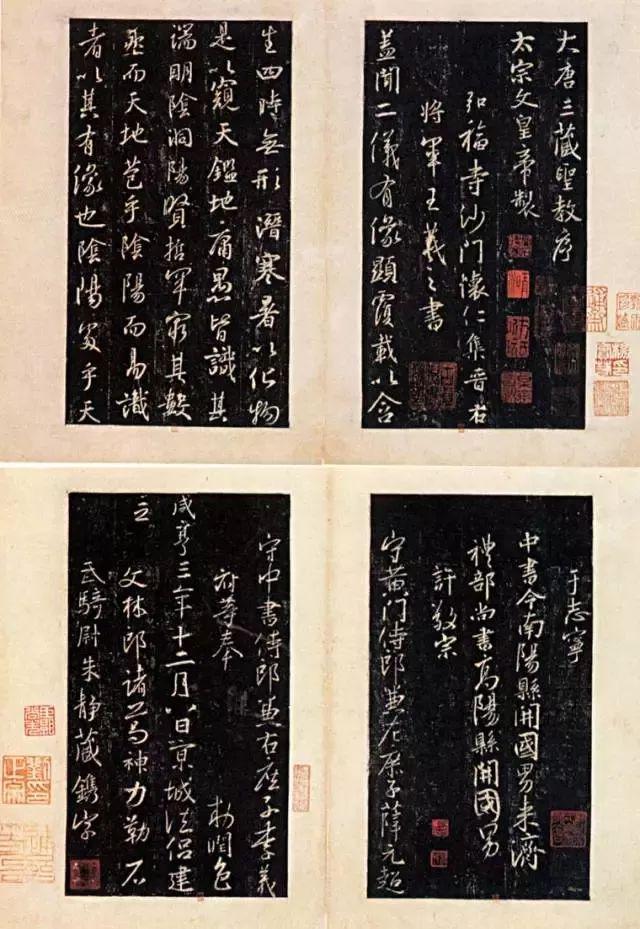 大唐三藏聖教序
太宗文皇帝製
弘福寺沙門懷仁集晉右
將軍王羲之書
盖聞二儀有像顯覆載以含
生四時無形潛寒暑以化物
是以窺天鑑地庸愚皆識其
端明陰洞陽賢哲罕窮其數
然而天地苞乎陰陽而易識
者以其有像也陰陽處乎天
于志寧
中書令南陽縣開國男來濟
禮部尚書高陽縣開國男
許敬宗
守黃門侍郎兼左庶子薛元超
守中書侍郎兼右庶子李義
府等奉 敕潤色
咸亨三年十二月八日京城法侶建
立
文林郎諸葛神力勒石
武騎尉朱靜藏鐫字